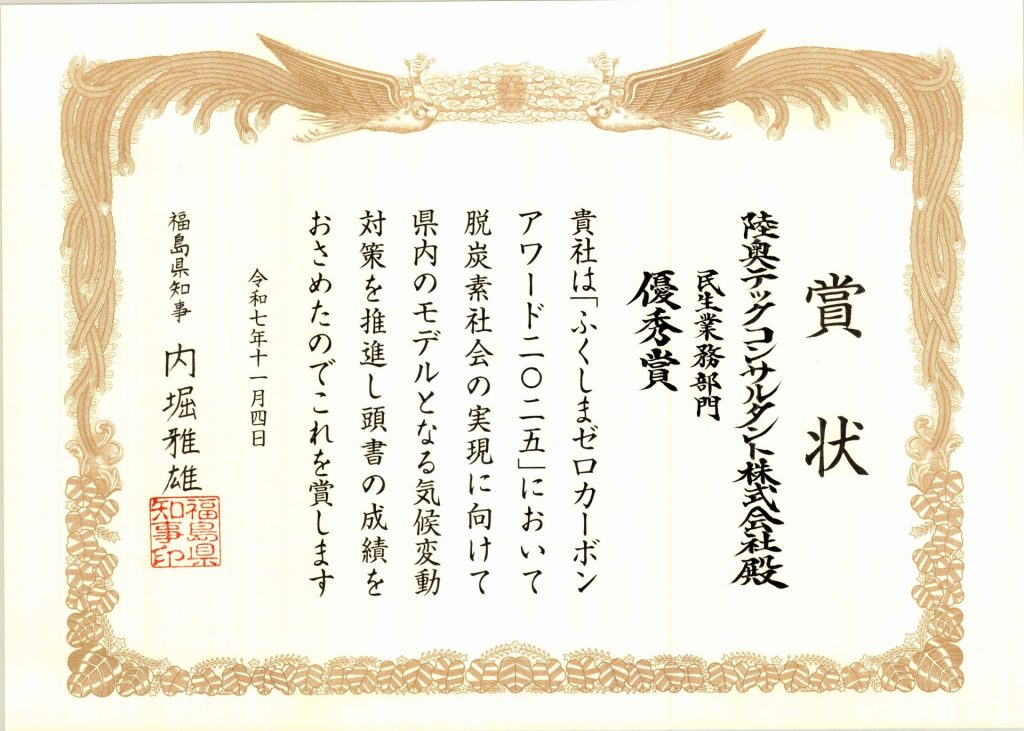 賞状
陸奥テックコンサルタント株式会社殿
民生業務部門
優秀賞
貴社は「ふくしまゼロカーボン
アワード二〇二五」において
脱炭素社会の実現に向けて
県内のモデルとなる気候変動
対策を推進し頭書の成績を
おさめたのでこれを賞します
令和七年十一月四日
福島県知事 内堀雅雄
福島県
知事印